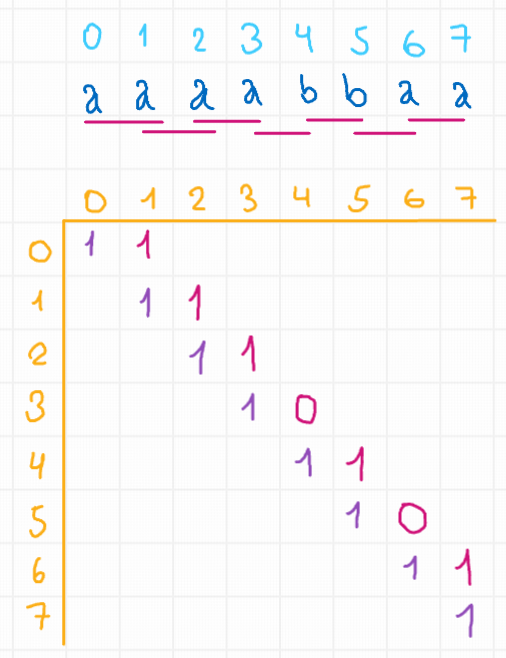 0 1 2 3 4 5 6 7
a a a a b b a a
0 1 2 3 4 5 6 7
0 1 1
1 1 1
2 1 1
3 1 0
4 1 1
5 1 0
6 1 1
7 1